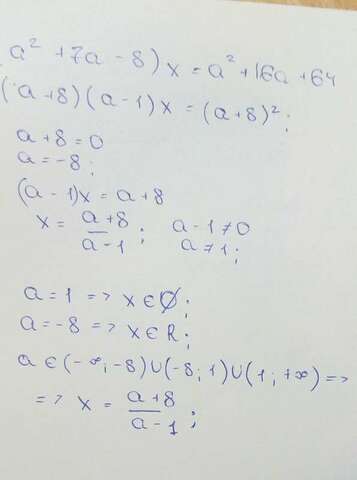 a² + 7a - 8) x = a² + 16a + 64
(a+8)(a-1)x = (a+8)²;
a+8=0
a=-8;
(a-1)x = a+8
x = (a+8)/(a-1); a-1≠0
a≠1;
a=1 => x∈∅;
a=-8 => x∈R;
a∈(-∞;-8)∪(-8;1)∪(1;+∞) =>
=> x = (a+8)/(a-1);